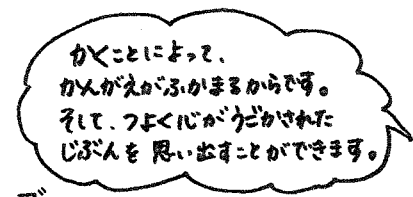 かくことによって、
かんがえがふかまるからです。
そして、つよく心がうごかされた
じぶんを思い出すことができます。